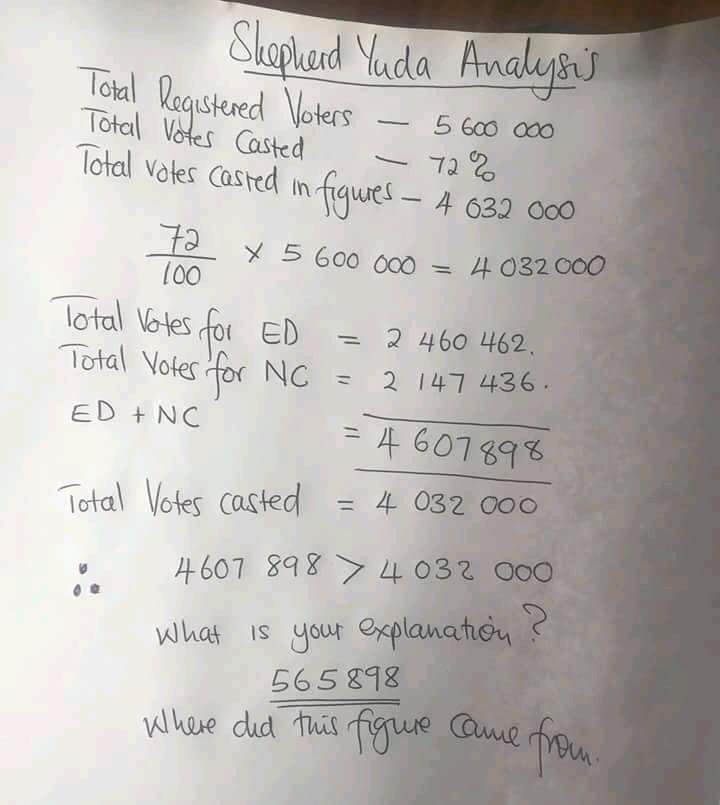 Shepherd Yuda Analysis
Total Registered Voters – 5 600 000
Total Votes Casted – 72%
Total votes casted in figures – 4 032 000
72/100 × 5 600 000 = 4 032 000
Total Votes for ED = 2 460 462.
Total Votes for NC = 2 147 436.
ED + NC = 4 607 898
Total Votes casted = 4 032 000
∴ 4607 898 > 4 032 000
What is your explanation?
565898
Where did this figure came from.